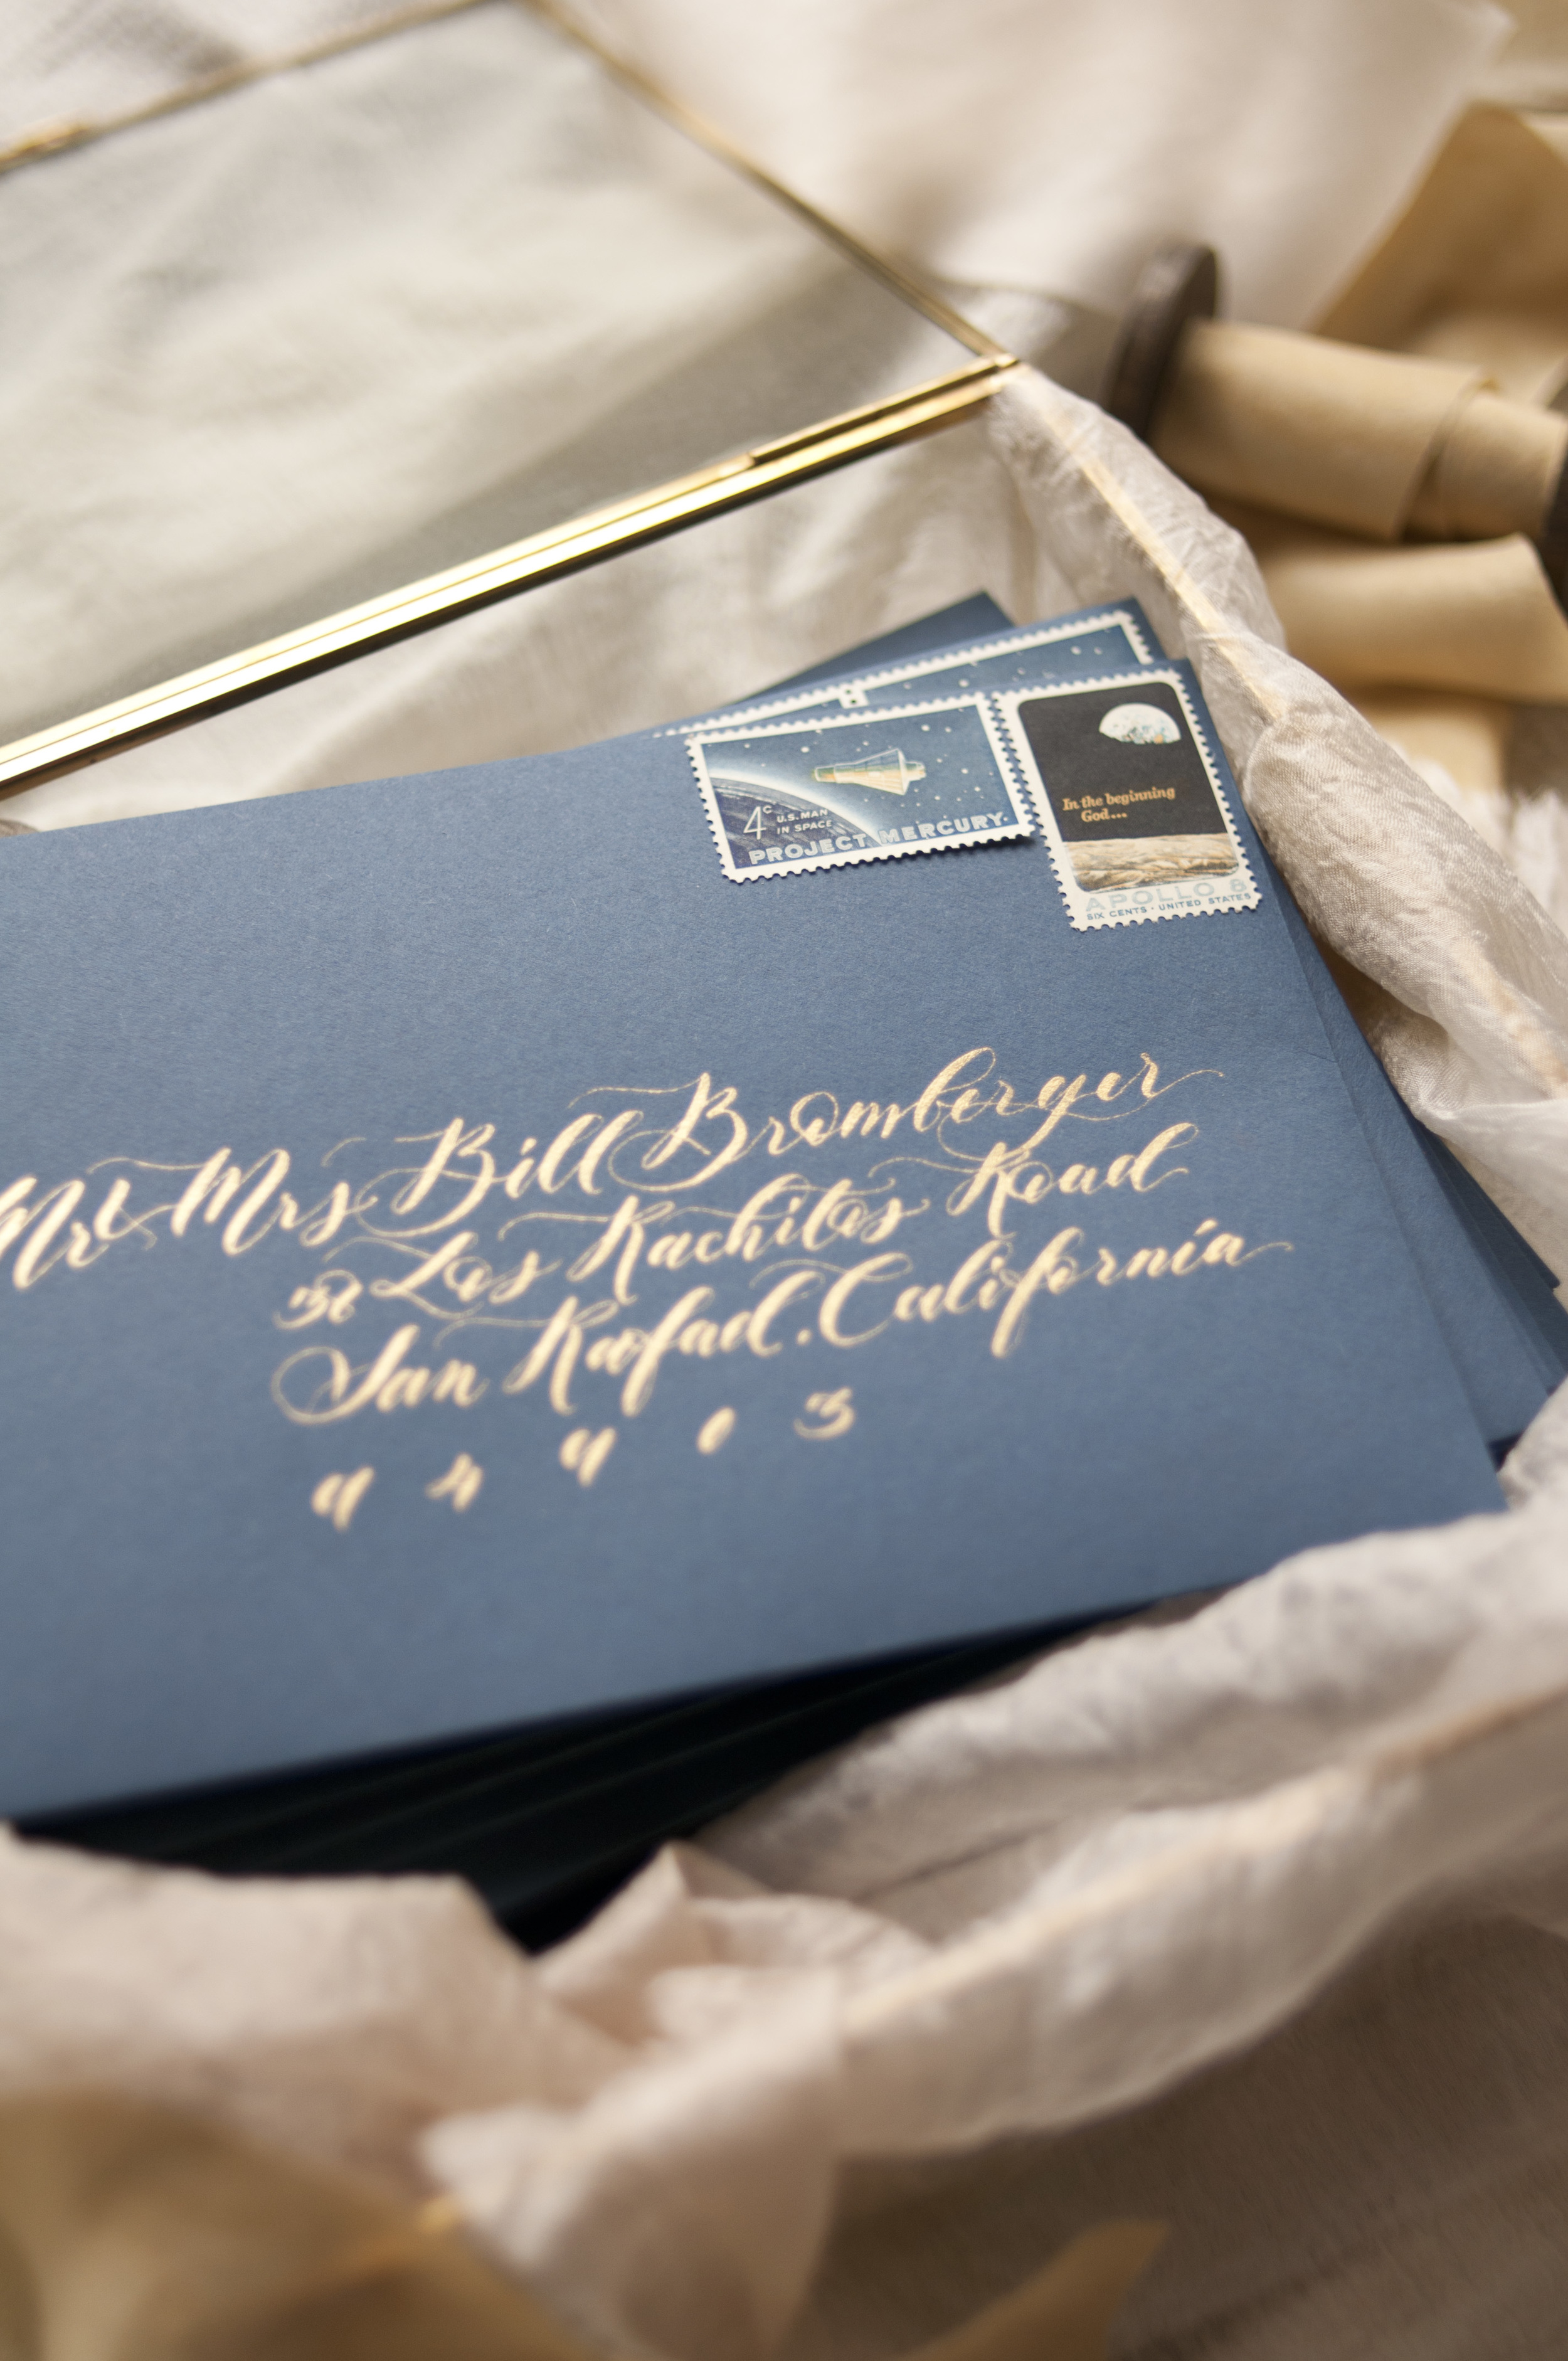 4c U.S. MAN
IN SPACE
PROJECT MERCURY
In the beginning
God...
APOLLO 8
SIX CENTS · UNITED STATES
Mr & Mrs Bill Bromberger
38 Los Rachitos Road
San Rafael. California
9 4 9 0 3